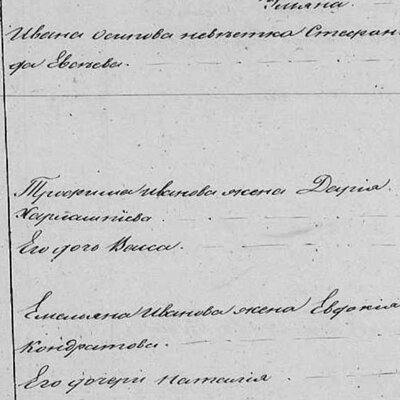 Улияна.
Ивана осипова невѣстка Стефани
да Евсѣева.
Трофима иванова жена Дарія
Харлампіева.
Его дочь Васса.
Емельяна Иванова жена Евдокія
Кондратова.
Его дочери наталія.